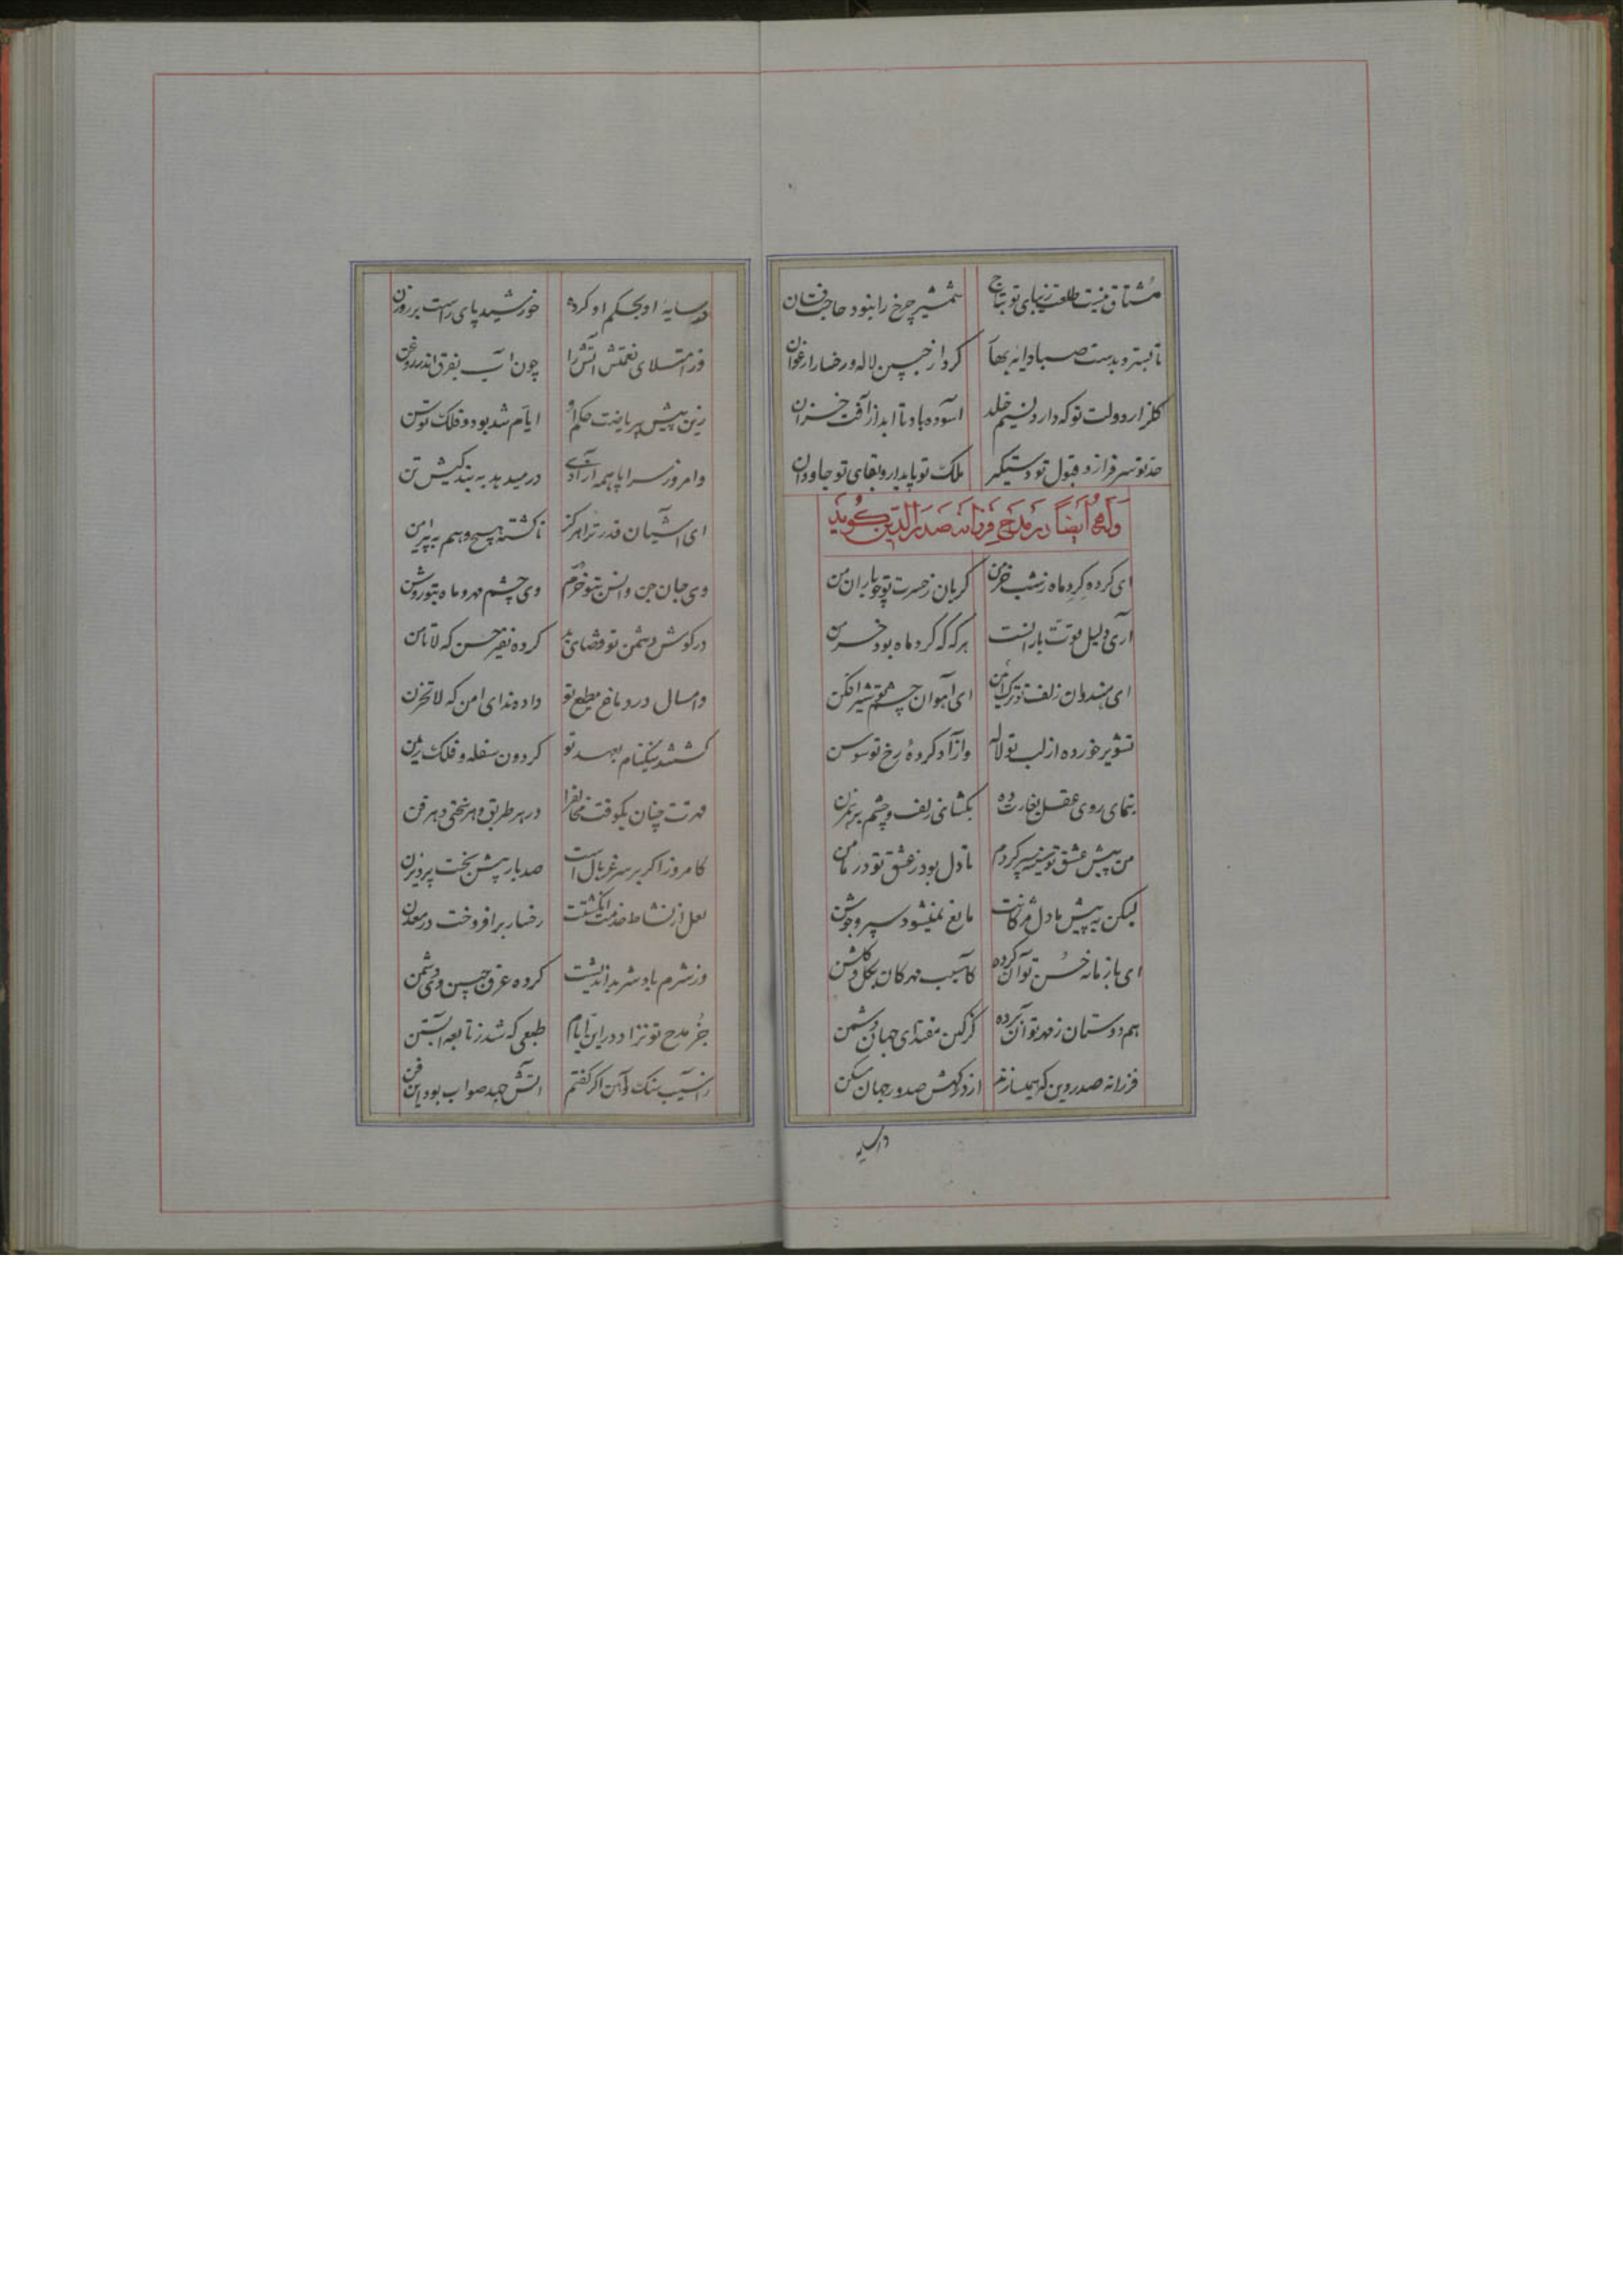 مشتاق نیست طلعت زیبای تو بتاج شمشیر چرخ را نبود حاجت فسان
تا بسترد بدست صبا دایه بهار گرد از جبین لاله و رخسار ارغوان
گلزار دولت تو که دارد نسیم خلد آسوده باد تا ابد از آفت خزان
سرفراز و قبول تو دستگیر ملک تو پایدار و بقای تو جاودان
وله ایضاً در مدح فرزانه صدرالدین گوید
ای کرده گرد ماه ز شب خرمن گریان ز حسرت تو چو باران من
آری دلیل قوت بارانست هرگه که گرد ماه بود خرمن
ای هندوان زلف تو ترک ای آهوان چشم تو شیرافکن
تشویر خورده از لب تو لاله وازاد کرده رخ تو سوسن
بنمای روی عقل بغارت ده بگشای زلف و چشم برهم زن
من پیش عشق تو سپر کردم تا دل بود ز عشق تو در مامن
لیکن به پیش ما دل مژگانت مانع نمیشود سپر و جوشن
ای با زمانه حسن تو آن کرده کاسیب مهرگان بگل و گلشن
هم دوستان ز مهر تو آن برده کز کین مقتدای جهان دشمن
فرزانه صدر دین که همی سازند از درگهش صدور جهان مسکن
در سایه
در سایه او بحکم او کرده خورشید پای راست بر روزن
وز امتلای نعمتش آتش را چون آب بفرق اندر روغن
زین پیش بی ریاضت حکم او ایام شد بود و فلک توسن
وامروز سراپا همه آزادی در میدهد به بندگیش تن
ای آشیان قدر ترا هرگز ناگشته هیچ وهم به پیرامن
وی جان جن و انس بتو خرم وی چشم مهر و ماه بتو روشن
در گوش دشمن تو قضای بد کرده نفیر حسن که لا تامن
وامسال در دماغ مطیع تو داده ندای امن که لا تحزن
گشتند نیکنام بعهد تو گردون سفله و فلک ریمن
قهرت چنان بکوفت مخالف را در هر طریق و هر نحوی و هر فن
کامروز اگر بر سر غربال است صد بار پیش بیخت پرویزن
لعل از نشاط خدمت انگشتت رخسار برافروخت در معدن
وز شرم باد شرم بداندیشت کرده عرق جبین و دی بهمن
جز مدح تو نزاد در این ایام طبعی که شد ز تابعه آبستن
ز آسیب سنگ و آهن اگر گفتم آتش جهد صواب بود این فن